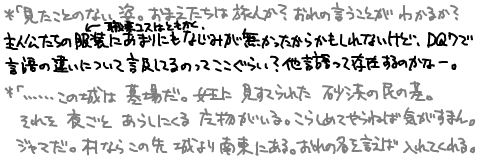 *「見たことのない姿。おまえたちは旅人か?おれの言うことがわかるか?
←職業コスはともかく
主人公たちの服装にあまりにもなじみが無かったからかもしれないけど、DQ7で
言語の違いについて言及してるのってここぐらい?他言語って存在するのかなー。
*「……この城は墓場だ。女王に見すてられた砂漠の民の墓。
それを夜ごとあらしにくる怪物がいる。こらしめてやらねば気がすまん。
ジャマだ。村ならこの先 城より南東にある。おれの名を言えば入れてくれる。